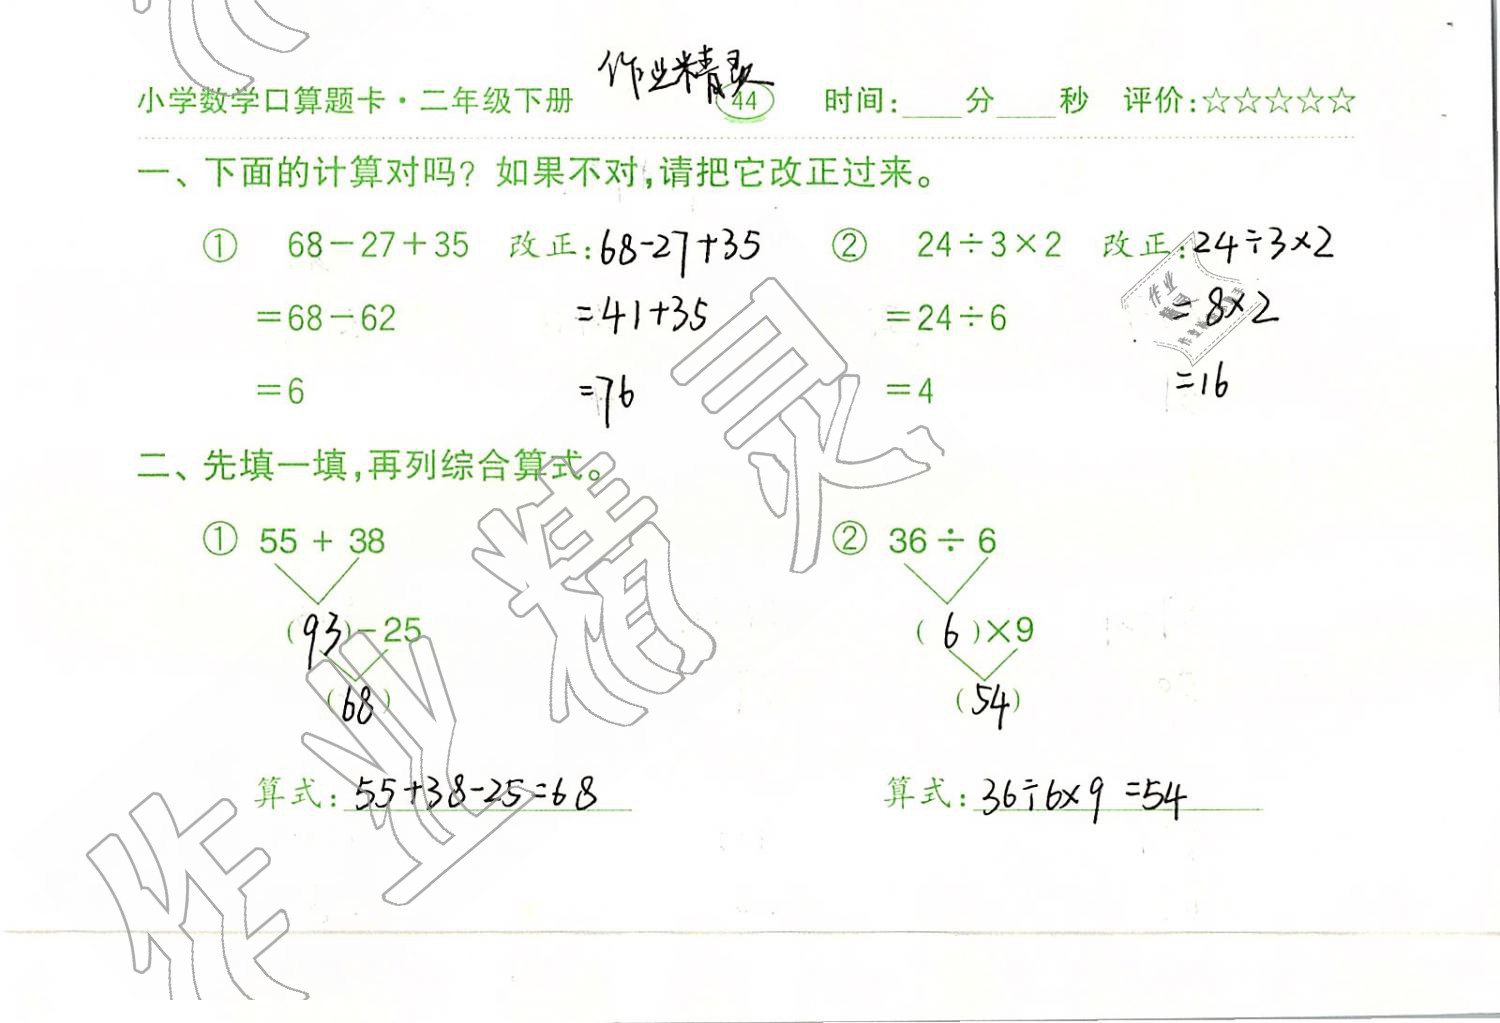 作业精灵
小学数学口算题卡·二年级下册 44 时间:____分____秒 评价:☆☆☆☆☆
一、下面的计算对吗？如果不对,请把它改正过来。
① 68－27＋35 改正:68-27+35 ② 24÷3×2 改正:24÷3×2
＝68－62 =41+35 ＝24÷6 =8×2
＝6 =76 ＝4 =16
二、先填一填,再列综合算式。
① 55 + 38 ② 36 ÷ 6
(93)－25 (6)×9
(68) (54)
算式:55+38-25=68 算式:36÷6×9=54
作业精灵